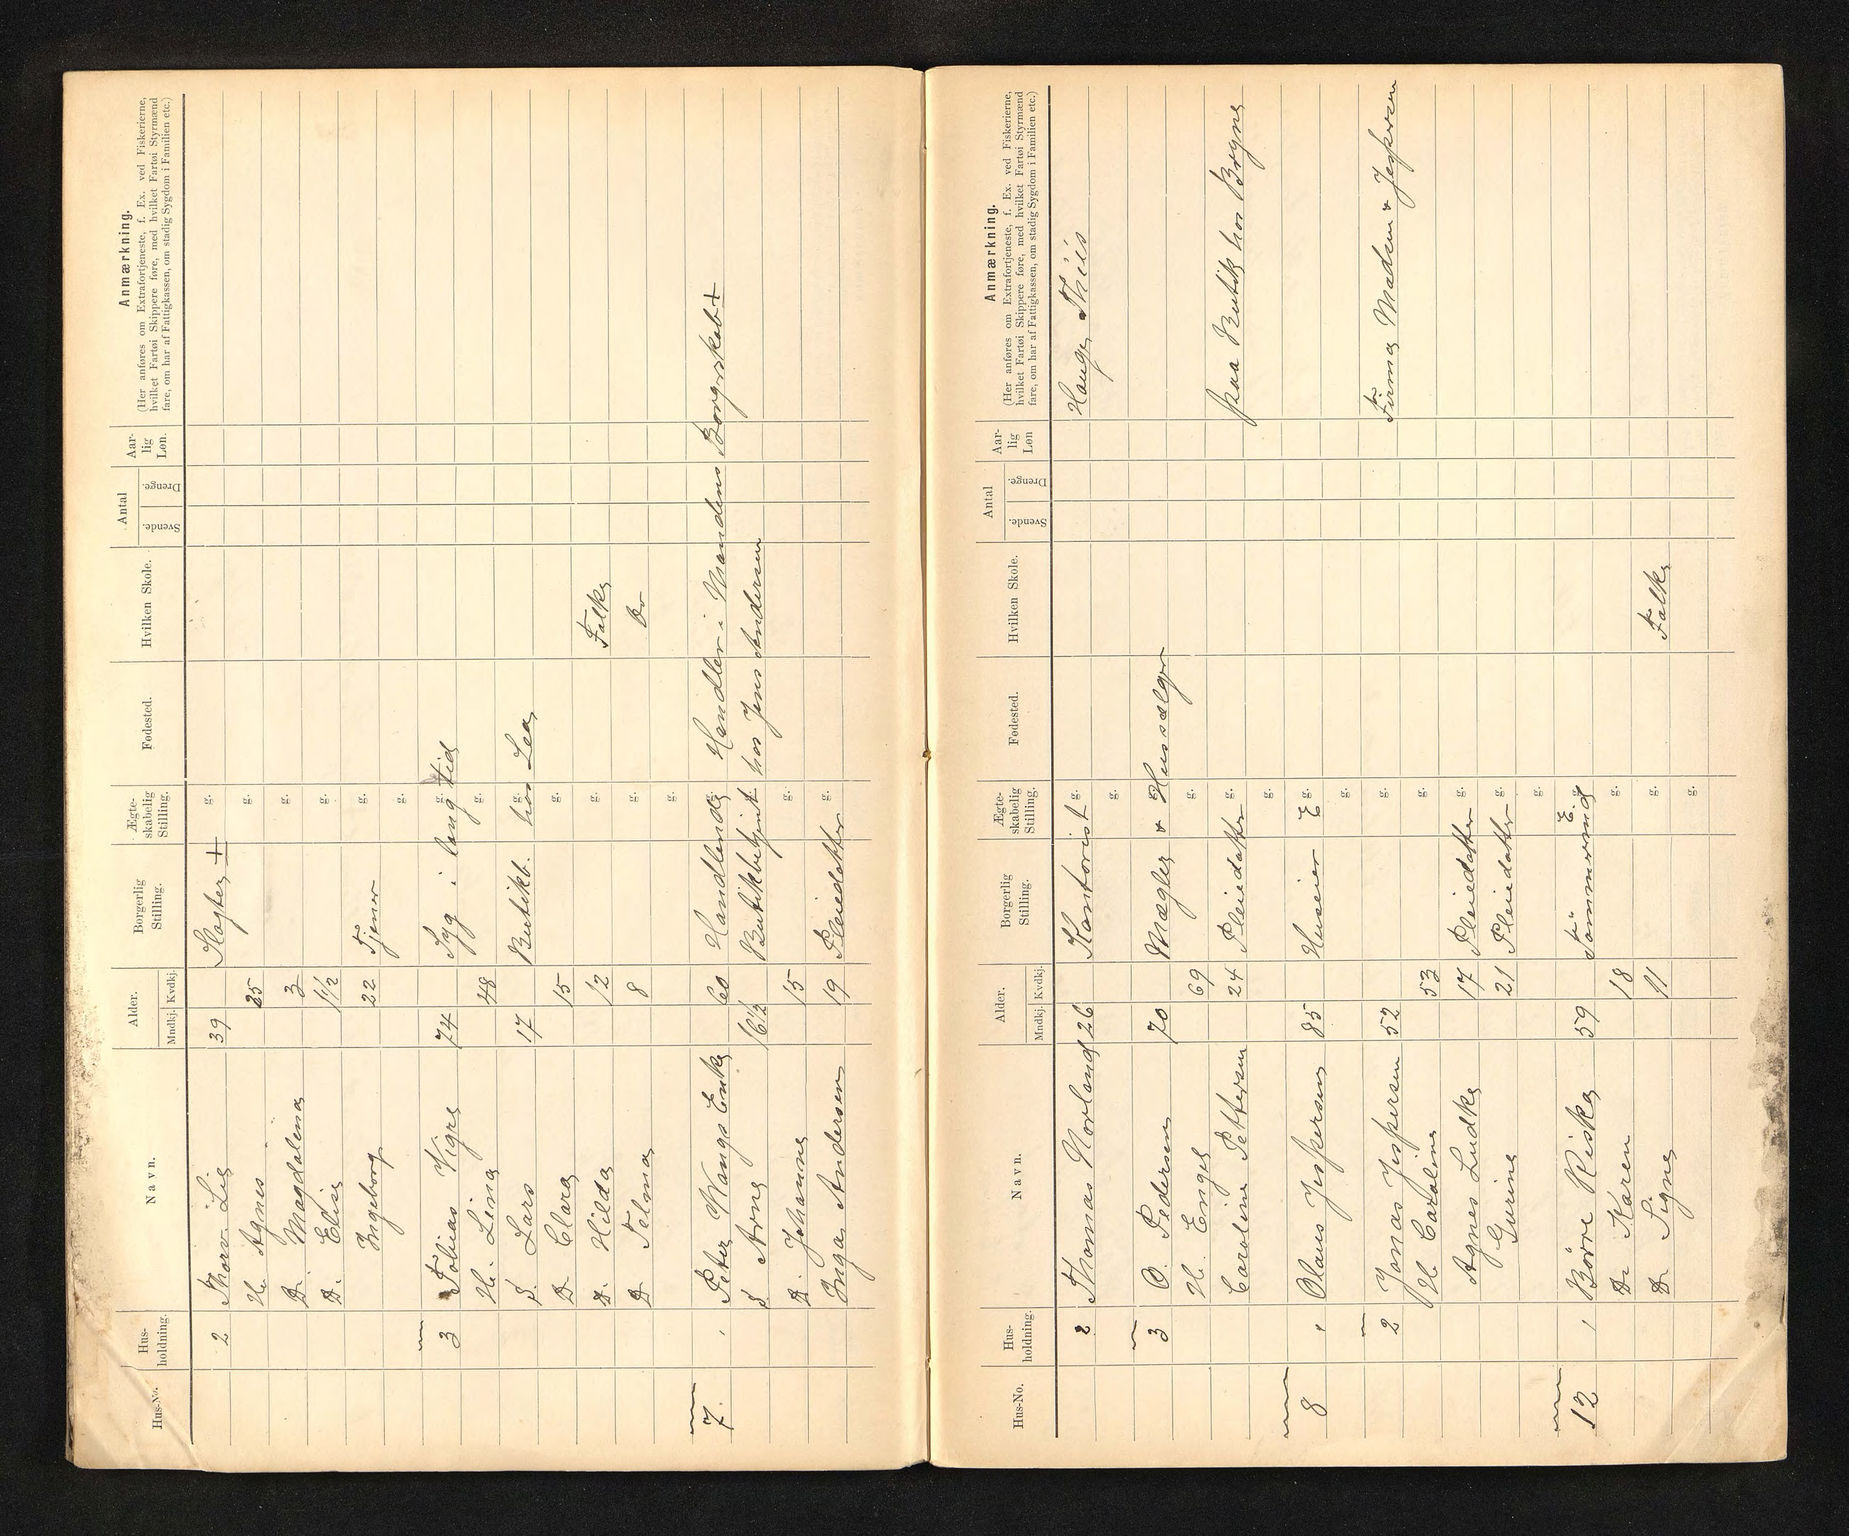 Hus-No. Hus-holdning. Navn. Alder. Mndkj. Kvdkj. Borgerlig Stilling. Ægte-skabelig Stilling. Fødested. Hvilken Skole. Antal Svende. Drenge. Aar-lig Løn. Anmærkning.
(Her anføres om Extrafortjeneste, f. Ex. ved Fiskerierne,
hvilket Fartøi Skippere føre, med hvilket Fartøi Styrmænd
fare, om har af Fattigkassen, om stadig Sygdom i Familien etc.)
2 Thorv. Lie 39 Slagter + g.
H. Agnes 35 g.
D. Magdalena 3 g.
D. Elise 1 1/2 g.
Ingeborg 22 Tjener g.
g.
3 Tobias Vigre 74 Syg i lang tid g.
H. Lina 48 g.
S. Lars 17 Butikb. hos Lea g.
D. Clara 15 g.
D. Hilda 12 g. Falke
D Telma 8 g. Do
g.
7. 1 Peter Wangs Enke 60 Handlende g. Handler i Mandens Borgerskab +
S Arne 16 1/2 Butikbetjent hos Jens Andersen
D. Johanne 15 g.
Inga Andersen 19 Pleiedatter g.
Hus-No. Hus-holdning. Navn. Alder. Mndkj. Kvdkj. Borgerlig Stilling. Ægte-skabelig Stilling. Fødested. Hvilken Skole. Antal Svende. Drenge. Aar-lig Løn Anmærkning.
(Her anføres om Extrafortjeneste, f. Ex. ved Fiskerierne,
hvilket Fartøi Skippere føre, med hvilket Fartøi Styrmænd
fare, om har af Fattigkassen, om stadig Sygdom i Familien etc.)
2 Thomas Norland 26 Kontorist g. Hauge Thiis
g.
3 O. Pedersen 70 Mægler & Hussælger
H. Engel 69 g.
Caroline Pettersen 24 Pleiedatter g. paa Butik hos Bryne
g.
8 1 Olaus Jespersen 85 Huseier E g.
g.
2 Jonas Jespersen 52 g. Firma Madsen & Jespersen
H Caroline 53 g.
Agnes Ludke 17 Pleiedatter g.
Gurine 21 Pleiedatter g.
g.
12 1 Börre Riska 59 Tømmermd E. g.
D. Karen 18 g.
D Signe 11 g. Falke
g.